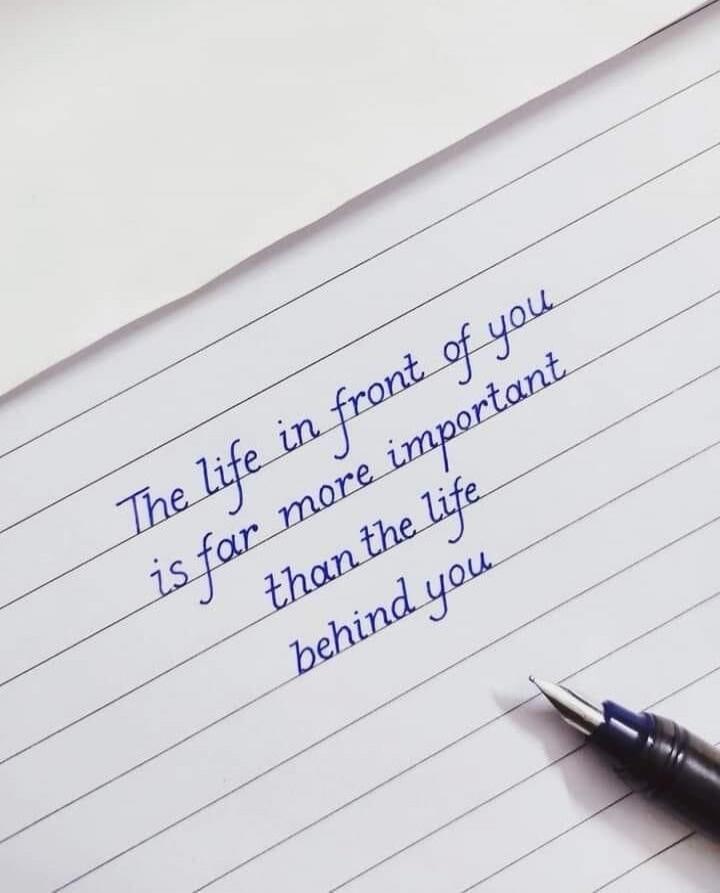 The life in front of you
is far more important
than the life
behind you